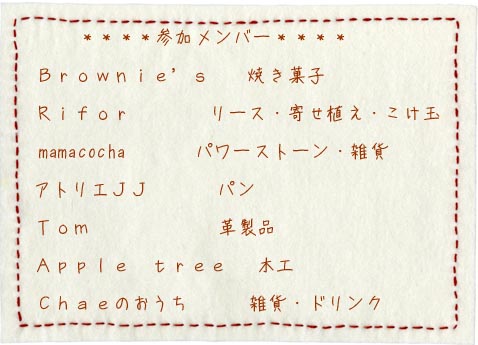 ＊＊＊＊参加メンバー＊＊＊＊
Ｂｒｏｗｎｉｅ’ｓ　焼き菓子
Ｒｉｆｏｒ　リース・寄せ植え・こけ玉
mamacocha　パワーストーン・雑貨
アトリエＪＪ　パン
Ｔｏｍ　革製品
Ａｐｐｌｅ　ｔｒｅｅ　木工
Ｃｈａｅのおうち　雑貨・ドリンク